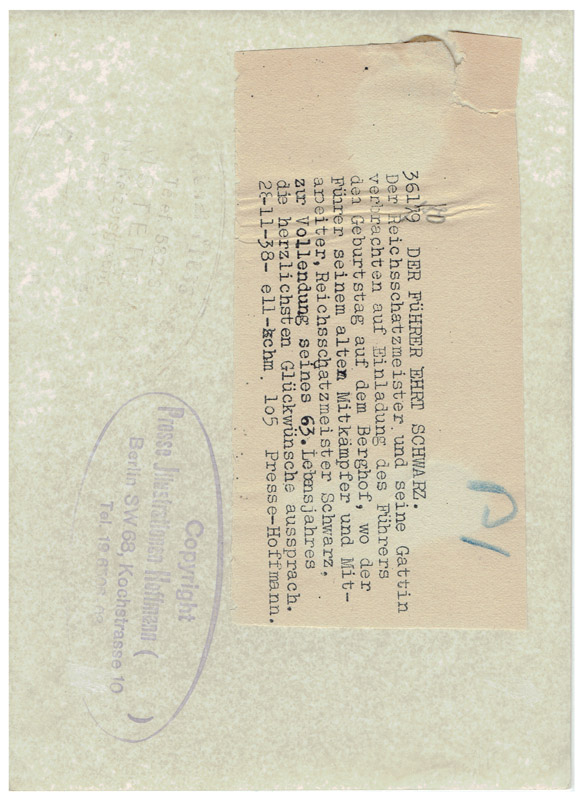 36179 DER FÜHRER EHRT SCHWARZ.
Der Reichsschatzmeister und seine Gattin
verbrachten auf Einladung des Führers
den Geburtstag auf dem Berghof, wo der
Führer seinem alten Mitkämpfer und Mit-
arbeiter, Reichsschatzmeister Schwarz,
zur Vollendung seines 63. Lebensjahres
die herzlichsten Glückwünsche aussprach.
28-11-38- ell-schm. 105 Presse-Hoffmann.
Copyright
Presse Illustrationen Hoffmann
Berlin SW 68, Kochstrasse 10
Tel.